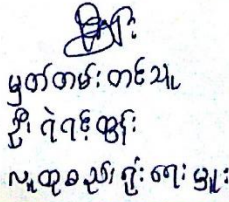 မှတ်တမ်းတင်သူ
ဦးရဲရင့်ထွန်း
လူထုစည်းရုံးရေးမှူး